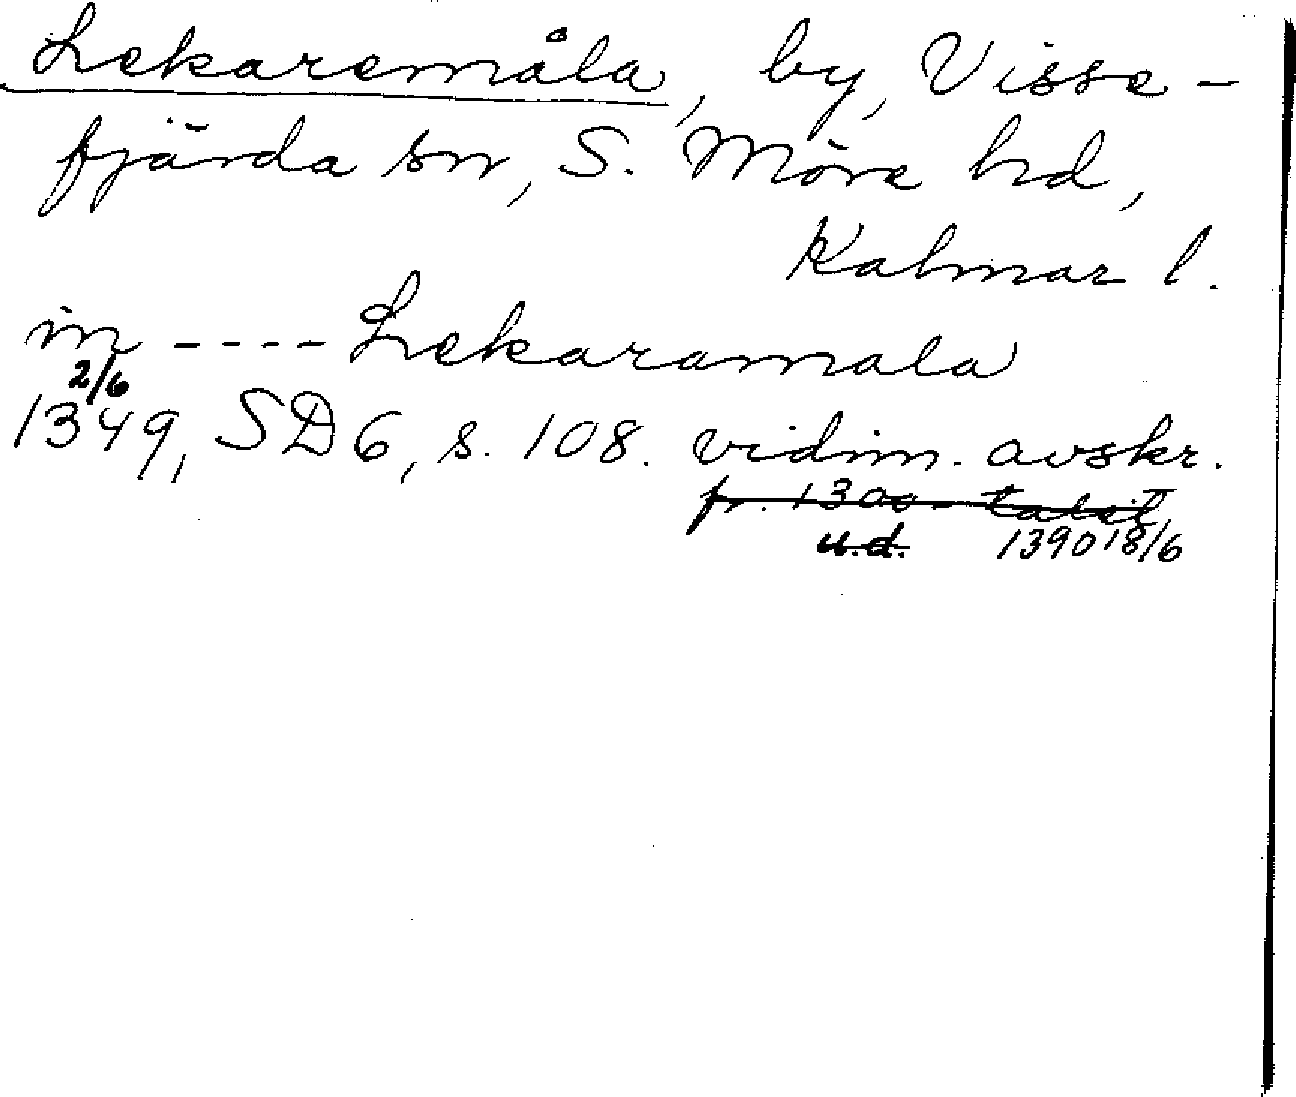 Lekaremåla, by, Visse-
fjärda sn, S. Möre hd,
Kalmar l.
in ---- Lekaramala
2/6
1349, SD 6, s. 108. vidim. avskr.
fr. 1300-talet
u.d. 1390 18/6